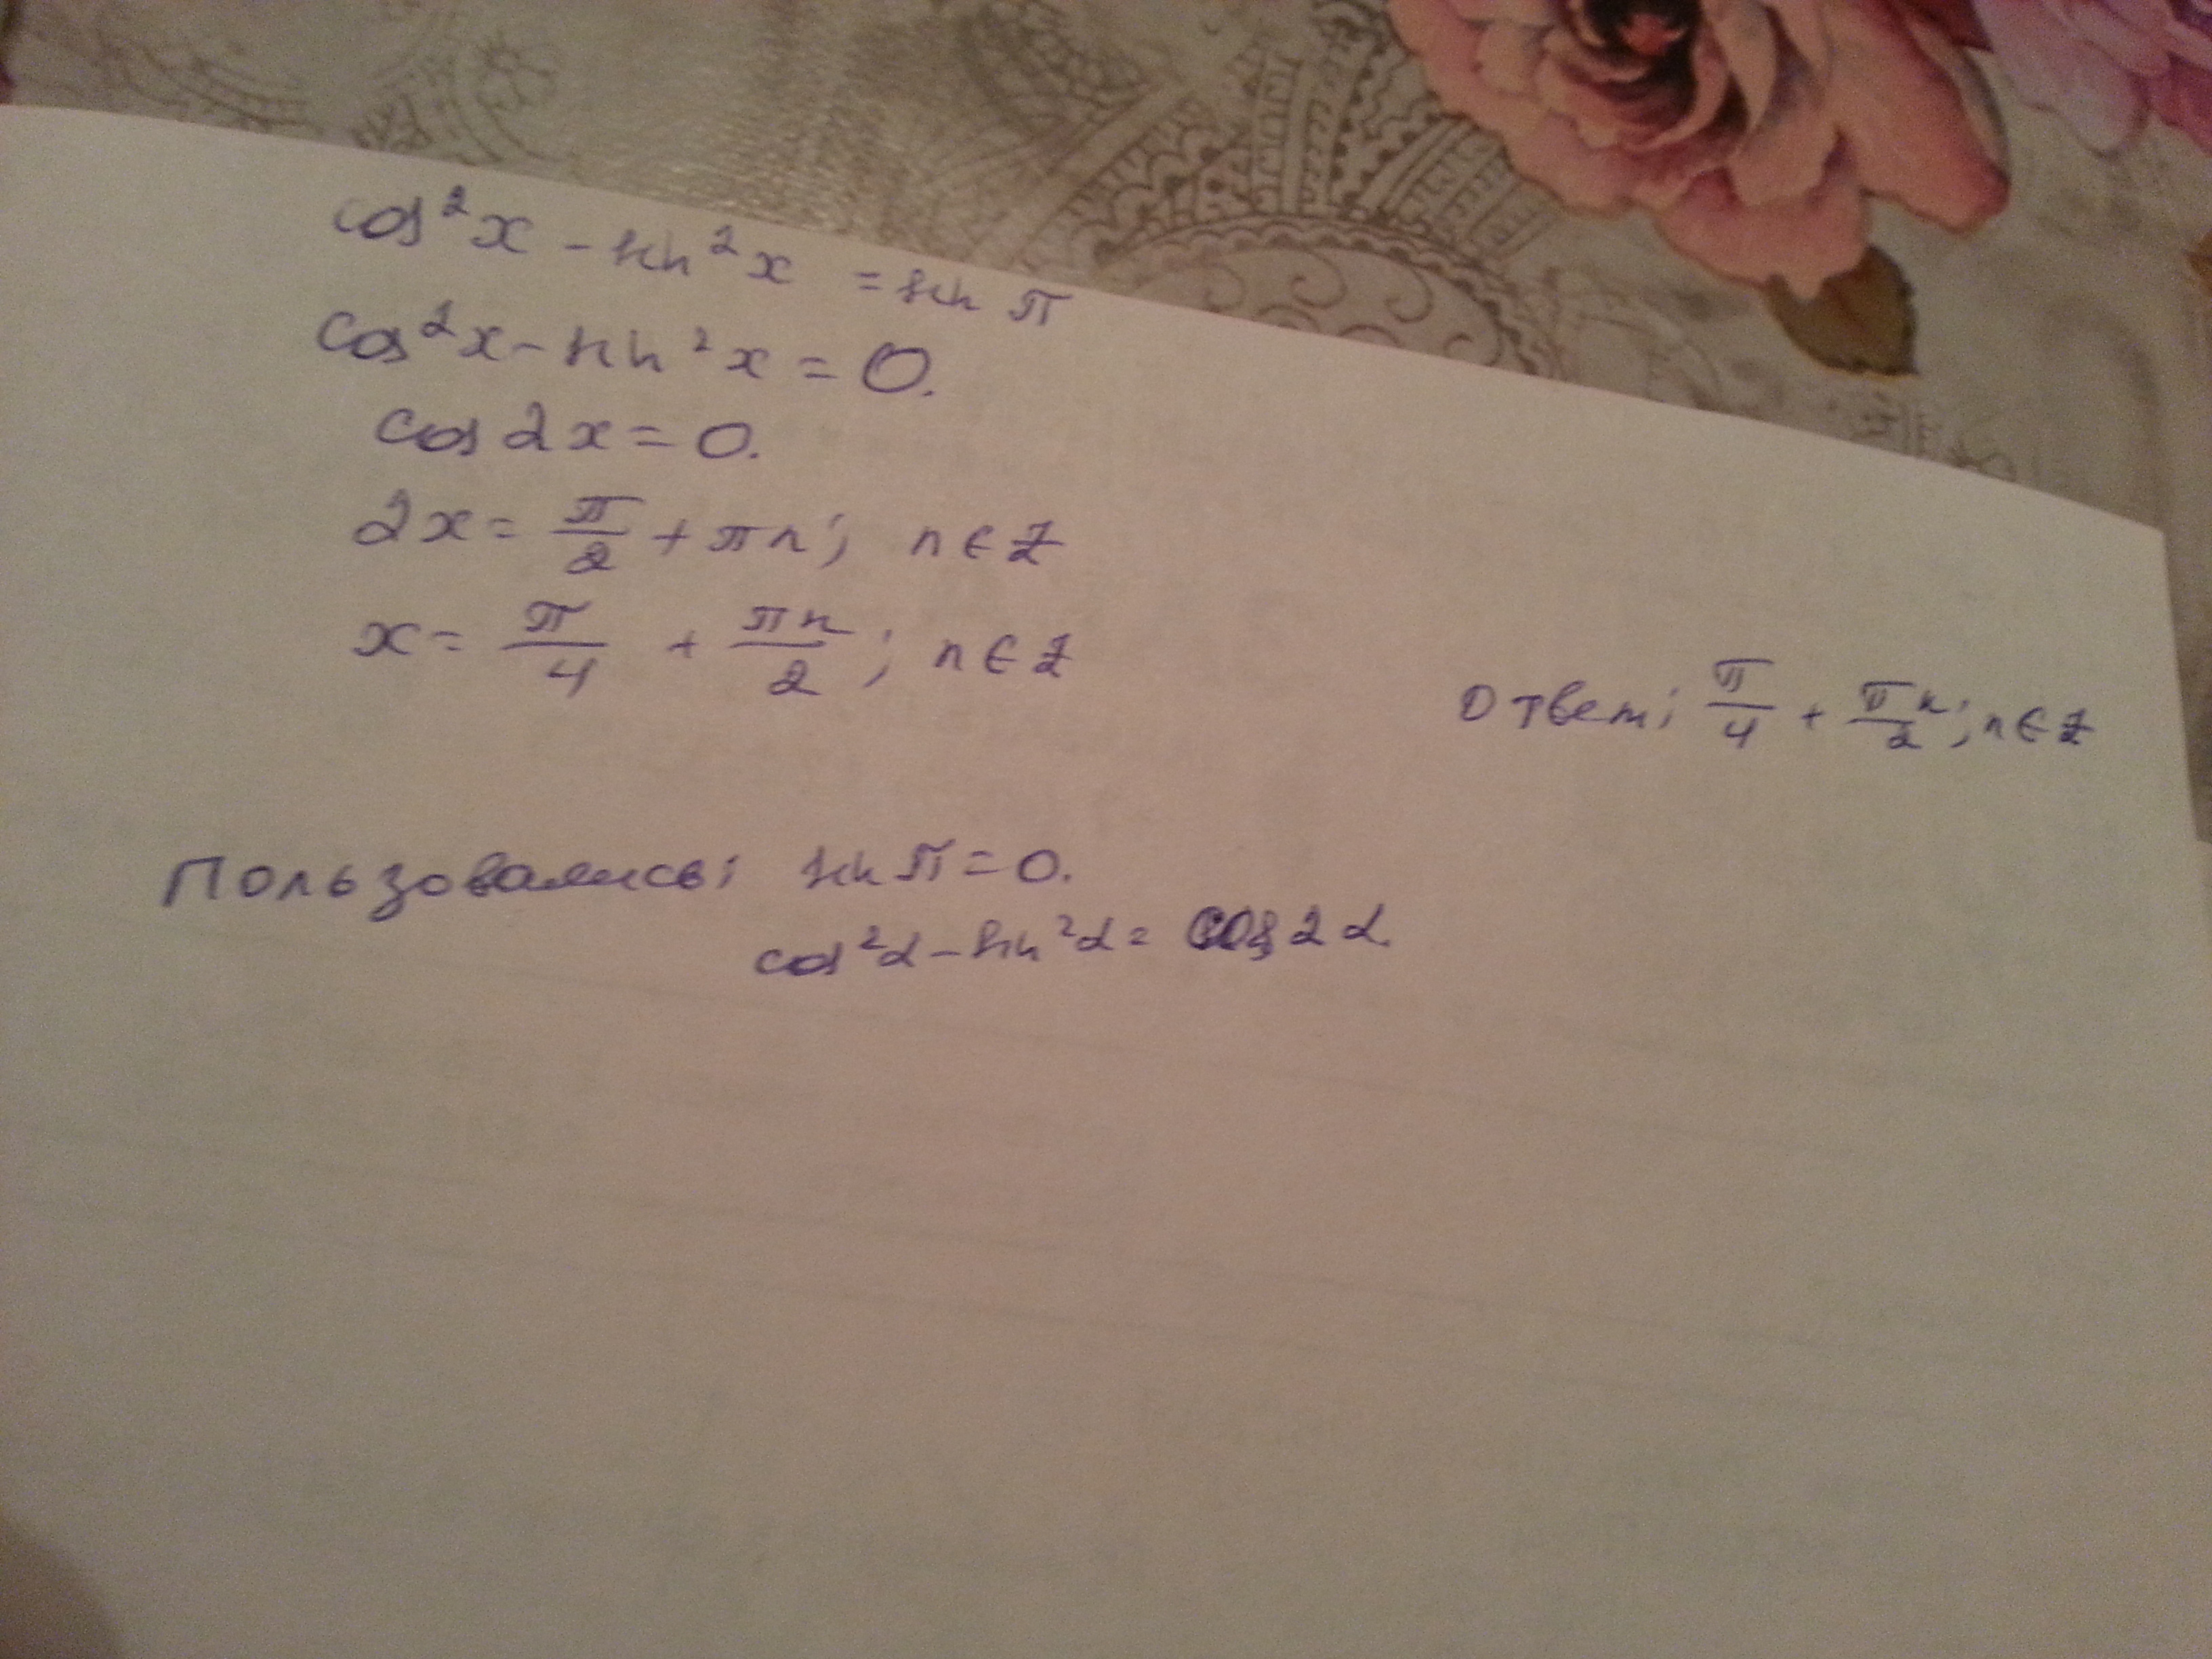 cos²x - sin²x = sin π
cos²x - sin²x = 0.
cos 2x = 0.
2x = π/2 + πn; n ∈ Z
x = π/4 + πn/2; n ∈ Z
Ответ: π/4 + πn/2; n ∈ Z
Пользовались: sin π = 0.
cos²α - sin²α = cos 2α.